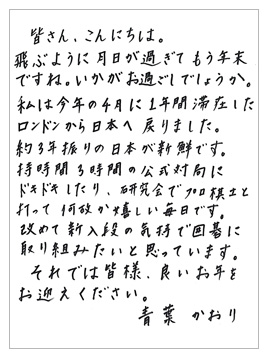 皆さん、こんにちは。
飛ぶように月日が過ぎてもう年末
ですね。いかがお過ごしでしょうか。
私は今年の4月に1年間滞在した
ロンドンから日本へ戻りました。
約3年振りの日本が新鮮です。
持時間3時間の公式対局に
ドキドキしたり、研究会でプロ棋士と
打って何故か嬉しい毎日です。
改めて新入段の気持で囲碁に
取り組みたいと思っています。
それでは皆様、良いお年を
お迎えください。
青葉かおり